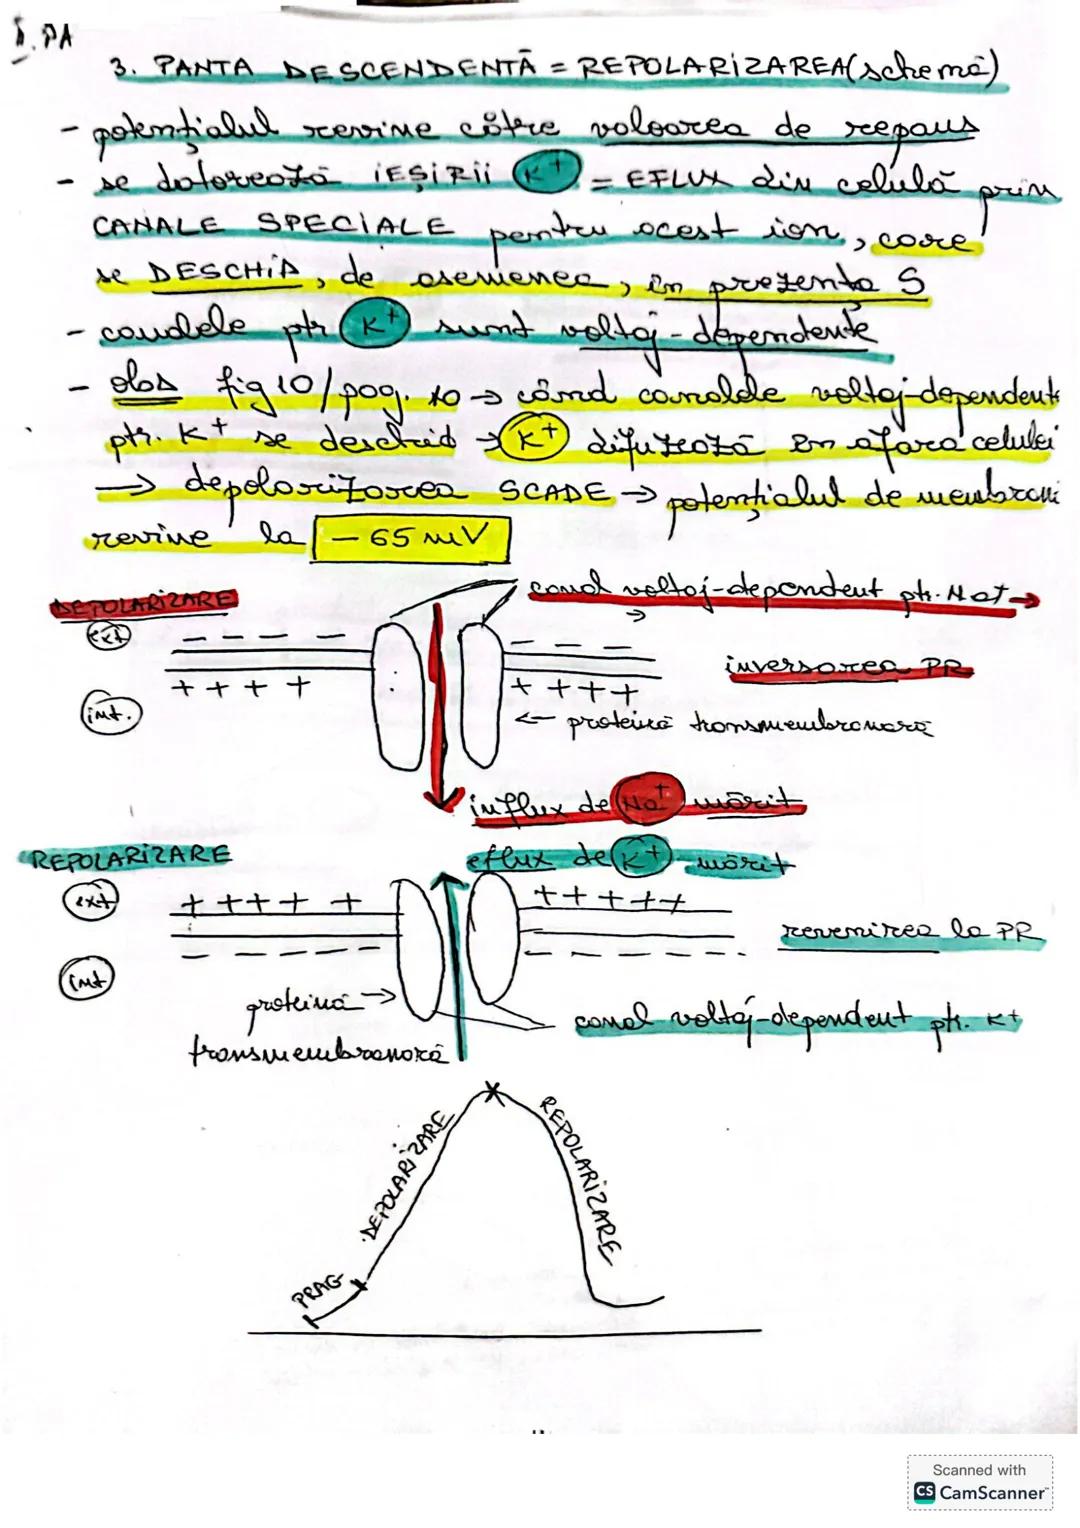 II. PA
3. PANTA DESCENDENTĂ = REPOLARIZAREA (schemă)
- potențialul revine către valoarea de repaus
- se datorează IEȘIRII K+ = EFLUX din celulă prin
CANALE SPECIALE pentru acest ion, care
se DESCHID, de asemenea, în prezența S
- canalele ptr K+ sunt voltaj-dependente
- obs fig 10/pag. 10 → când canalele voltaj-dependente
ptr. K+ se deschid → K+ difuzează în afara celulei
→ depolarizarea SCADE → potențialul de membrană
revine la - 65 mV
DEPOLARIZARE
canal voltaj-dependent ptr. Na+ →
ext
- - - -
- - -
inversarea PR
+ + + +
+ + + +
int.
← proteină transmembranară
influx de Na+ mărit
REPOLARIZARE
eflux de K+ mărit
ext
+ + + + +
+ + + + +
revenirea la PR
int
proteină →
transmembranară
canal voltaj-dependent ptr. K+
DEPOLARIZARE
REPOLARIZARE
PRAG
Scanned with
CS CamScanner